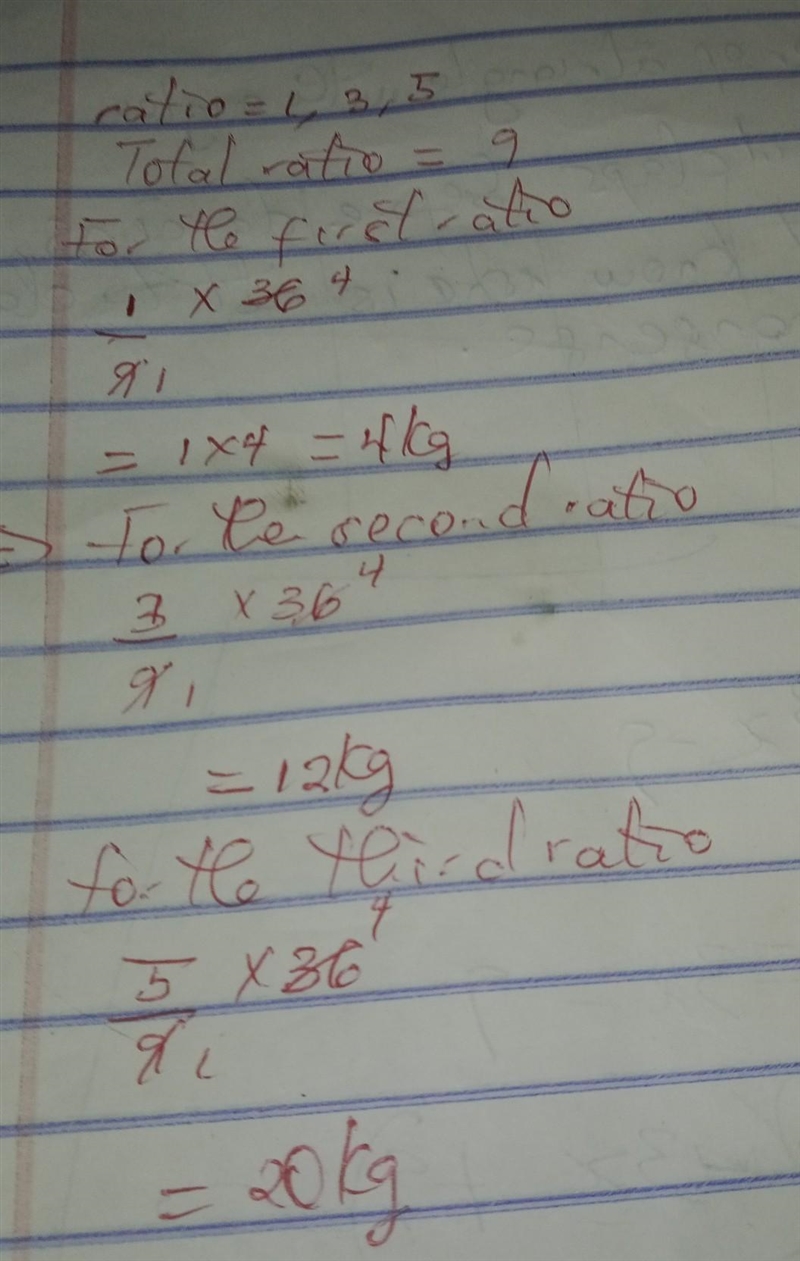 ratio = 1, 3, 5
Total ratio = 9
For the first ratio
1 × 36 4
9 1
= 1 × 4 = 4kg
=> For the second ratio
3 × 36 4
9 1
= 12kg
for the third ratio
5 × 36 4
9 1
= 20kg